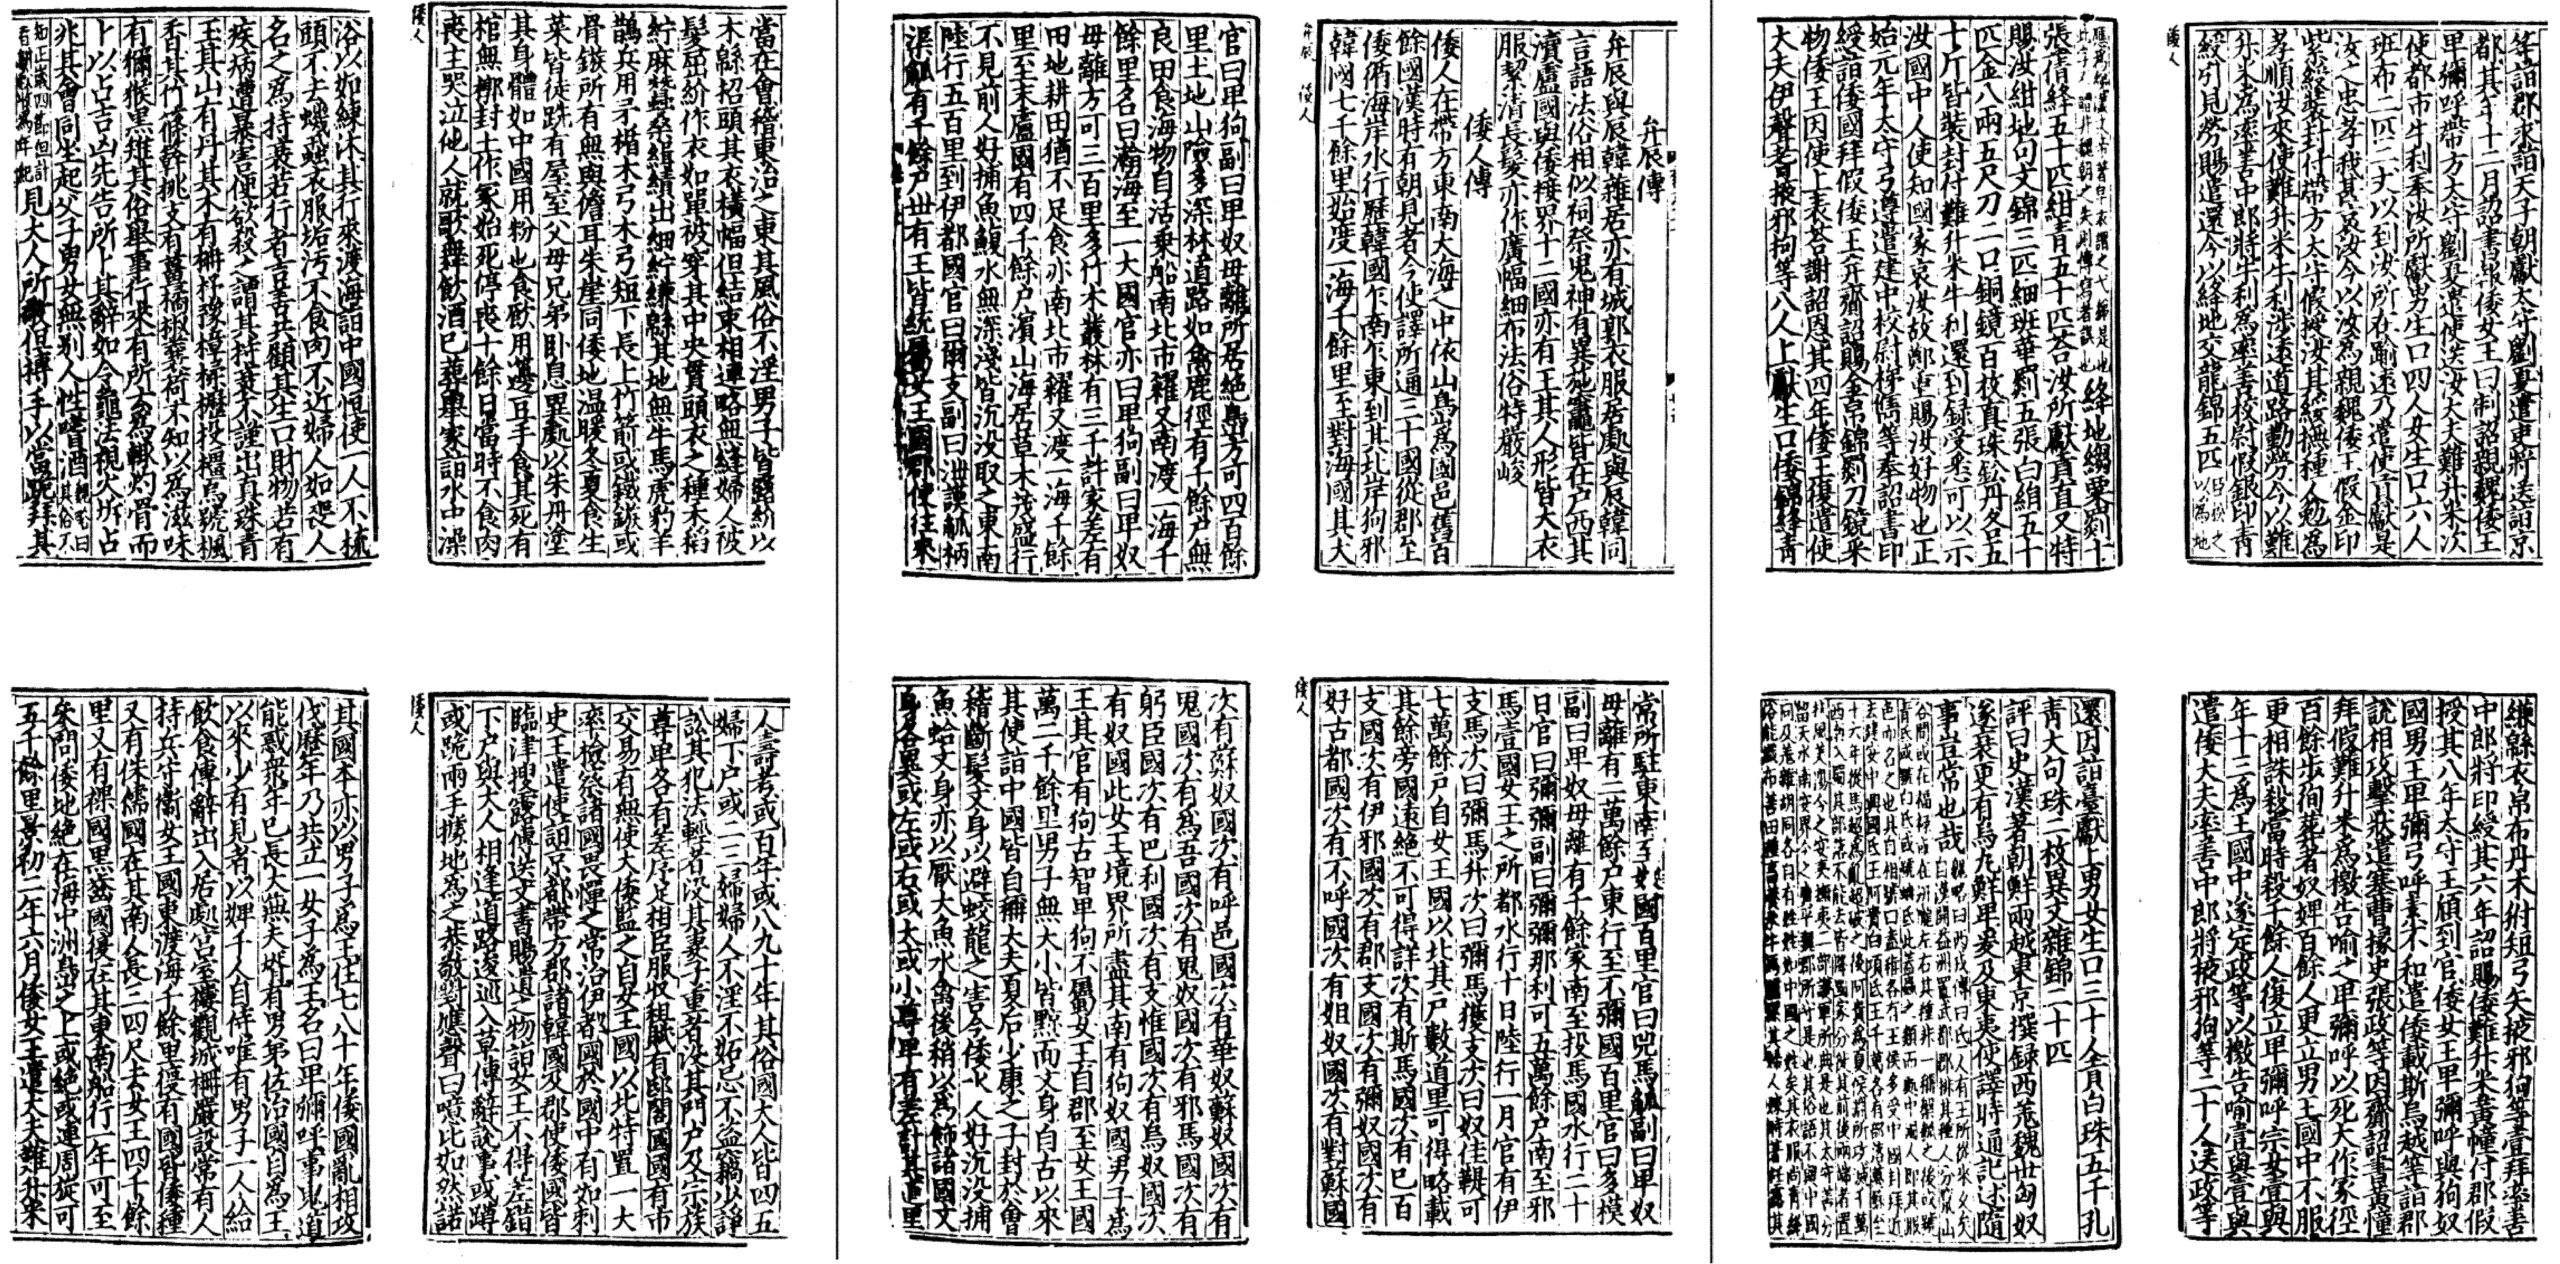 弁辰傳
弁辰與辰韓雜居亦有城郭衣服居處與辰韓同
言語法俗相似祠祭鬼神有異施竈皆在戶西其
瀆盧國與倭接界十二國亦有王其人形皆大衣
服絜清長髮亦作廣幅細布法俗特嚴峻
倭人傳
倭人在帶方東南大海之中依山㠀爲國邑舊百
餘國漢時有朝見者今使譯所通三十國從郡至
倭循海岸水行歷韓國乍南乍東到其北岸狗邪
韓國七千餘里始度一海千餘里至對海國其大
弁辰 倭人
官曰卑狗副曰卑奴母離所居絕㠀方可四百餘
里土地山險多深林道路如禽鹿徑有千餘戶無
良田食海物自活乗船南北市糴又南渡一海千
餘里名曰瀚海至一大國官亦曰卑狗副曰卑奴
母離方可三百里多竹木叢林有三千許家差有
田地耕田猶不足食亦南北市糴又渡一海千餘
里至末盧國有四千餘戶濵山海居草木茂盛行
不見前人好捕魚鰒水無深淺皆沉沒取之東南
陸行五百里到伊都國官曰爾支副曰泄謨觚柄
渠觚有千餘戶世有王皆統屬女王國郡使往來
常所駐東南至奴國百里官曰兕馬觚副曰卑奴
母離有二萬餘戶東行至不彌國百里官曰多模
副曰卑奴母離有千餘家南至投馬國水行二十
日官曰彌彌副曰彌彌那利可五萬餘戶南至邪
馬壹國女王之所都水行十日陸行一月官有伊
支馬次曰彌馬升次曰彌馬獲支次曰奴佳鞮可
七萬餘戶自女王國以北其戶數道里可得略載
其餘旁國遠絕不可得詳次有斯馬國次有已百
支國次有伊邪國次有郡支國次有彌奴國次有
好古都國次有不呼國次有姐奴國次有對蘇國
倭人
次有蘇奴國次有呼邑國次有華奴蘇奴國次有
鬼國次有爲吾國次有鬼奴國次有邪馬國次有
躬臣國次有巴利國次有支惟國次有烏奴國次
有奴國此女王境界所盡其南有狗奴國男子爲
王其官有狗古智卑狗不屬女王自郡至女王國
萬二千餘里男子無大小皆黥面文身自古以來
其使詣中國皆自稱大夫夏后少康之子封於會
稽斷髮文身以避蛟龍之害今倭水人好沉沒捕
魚蛤文身亦以厭大魚水禽後稍以爲飾諸國文
身各異或左或右或大或小尊卑有差計其道里
當在會稽東治之東其風俗不淫男子皆露紒以
木緜招頭其衣橫幅但結束相連略無縫婦人被
髮屈紒作衣如單被穿其中央貫頭衣之種禾稻
紵麻蠶桑緝績出細紵縑緜其地無牛馬虎豹羊
鵲兵用矛楯木弓木弓短下長上竹箭或鐵鏃或
骨鏃所有無與儋耳朱崖同倭地温暖冬夏食生
菜皆徒跣有屋室父母兄弟臥息異處以朱丹塗
其身體如中國用粉也食飲用籩豆手食其死有
棺無槨封土作冢始死停喪十餘日當時不食肉
喪主哭泣他人就歌舞飲酒已葬舉家詣水中澡
倭人
浴以如練沐其行來渡海詣中國恒使一人不梳
頭不去蟣蝨衣服垢汚不食肉不近婦人如喪人
名之爲持衰若行者吉善共顧其生口財物若有
疾病遭暴害便欲殺之謂其持衰不謹出真珠青
玉其山有丹其木有柟杼豫樟楺櫪投橿烏號楓
香其竹篠簳桃支有薑橘椒蘘荷不知以爲滋味
有獼猴黑雉其俗舉事行來有所云爲輒灼骨而
卜以占吉凶先告所卜其辭如令龜法視火坼占
兆其會同坐起父子男女無別人性嗜酒魏略曰其俗不
知正歲四節但計春耕秋收爲年紀見大人所敬但搏手以當跪拜其
人壽考或百年或八九十年其俗國大人皆四五
婦下戶或二三婦婦人不淫不妬忌不盜竊少諍
訟其犯法輕者沒其妻子重者沒其門戶及宗族
尊卑各有差序足相臣服收租賦有邸閣國國有市
交易有無使大倭監之自女王國以北特置一大
率檢察諸國畏憚之常治伊都國於國中有如刺
史王遣使詣京都帶方郡諸韓國及郡使倭國皆
臨津搜露傳送文書賜遺之物詣女王不得差錯
下戶與大人相逢道路逡巡入草傳辭說事或蹲
或跪兩手據地爲之恭敬對應聲曰噫比如然諾
倭人
其國本亦以男子爲王住七八十年倭國亂相攻
伐歷年乃共立一女子爲王名曰卑彌呼事鬼道
能惑衆年已長大無夫壻有男弟佐治國自爲王
以來少有見者以婢千人自侍唯有男子一人給
飲食傳辭出入居處宮室樓觀城柵嚴設常有人
持兵守衞女王國東渡海千餘里復有國皆倭種
又有侏儒國在其南人長三四尺去女王四千餘
里又有裸國黑齒國復在其東南船行一年可至
參問倭地絕在海中洲㠀之上或絕或連周旋可
五千餘里景初二年六月倭女王遣大夫難升米
等詣郡求詣天子朝獻太守劉夏遣吏將送詣京
都其年十二月詔書報倭女王曰制詔親魏倭王
卑彌呼帶方太守劉夏遣使送汝大夫難升米次
使都市牛利奉汝所獻男生口四人女生口六人
班布二匹二丈以到汝所在踰遠乃遣使貢獻是
汝之忠孝我甚哀汝今以汝爲親魏倭王假金印
紫綬裝封付帶方太守假授汝其綏撫種人勉爲
孝順汝來使難升米牛利涉遠道路勤勞今以難
升米爲率善中郎將牛利爲率善校尉假銀印青
綬引見勞賜遣還今以絳地交龍錦五匹臣松之以爲地
倭人
應爲綈漢文帝著皁衣謂之弋綈是也此字不體非魏朝之失則傳寫者誤也絳地縐粟罽十
張蒨絳五十匹紺青五十匹荅汝所獻貢直又特
賜汝紺地句文錦三匹細班華罽五張白絹五十
匹金八兩五尺刀二口銅鏡百枚真珠鈆丹各五
十斤皆裝封付難升米牛利還到録受悉可以示
汝國中人使知國家哀汝故鄭重賜汝好物也正
始元年太守弓遵遣建中校尉梯儁等奉詔書印
綬詣倭國拜假倭王并齎詔賜金帛錦罽刀鏡采
物倭王因使上表荅謝詔恩其四年倭王復遣使
大夫伊聲耆掖邪狗等八人上獻生口倭錦絳青
縑緜衣帛布丹木𤝔短弓矢掖邪狗等壹拜率善
中郎將印綬其六年詔賜倭難升米黃幢付郡假
授其八年太守王頎到官倭女王卑彌呼與狗奴
國男王卑彌弓呼素不和遣倭載斯烏越等詣郡
說相攻擊狀遣塞曹掾史張政等因齎詔書黃幢
拜假難升米爲檄告喻之卑彌呼以死大作冢徑
百餘步狥葬者奴婢百餘人更立男王國中不服
更相誅殺當時殺千餘人復立卑彌呼宗女壹與
年十三爲王國中遂定政等以檄告喻壹與壹與
遣倭大夫率善中郎將掖邪狗等二十人送政等
還因詣臺獻上男女生口三十人貢白珠五千孔
青大句珠二枚異文雜錦二十匹
評曰史漢著朝鮮兩越東京撰録西羌魏世匈奴
遂衰更有烏丸鮮卑爰及東夷使譯時通記述隨
事豈常也哉